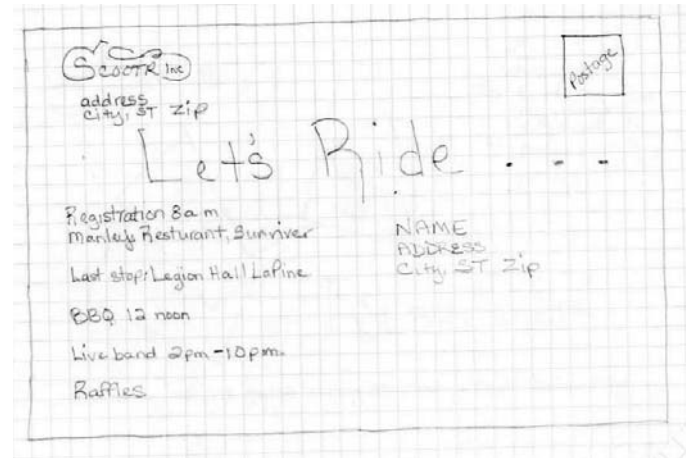 SCOOTR Inc
Postage
address
City, ST Zip
Let's Ride . . .
Registration 8am
Manley's Resturant, Sunriver
Last stop: Legion Hall LaPine
BBQ 12 noon
Live band 2pm-10pm.
Raffles
NAME
ADDRESS
City, ST Zip